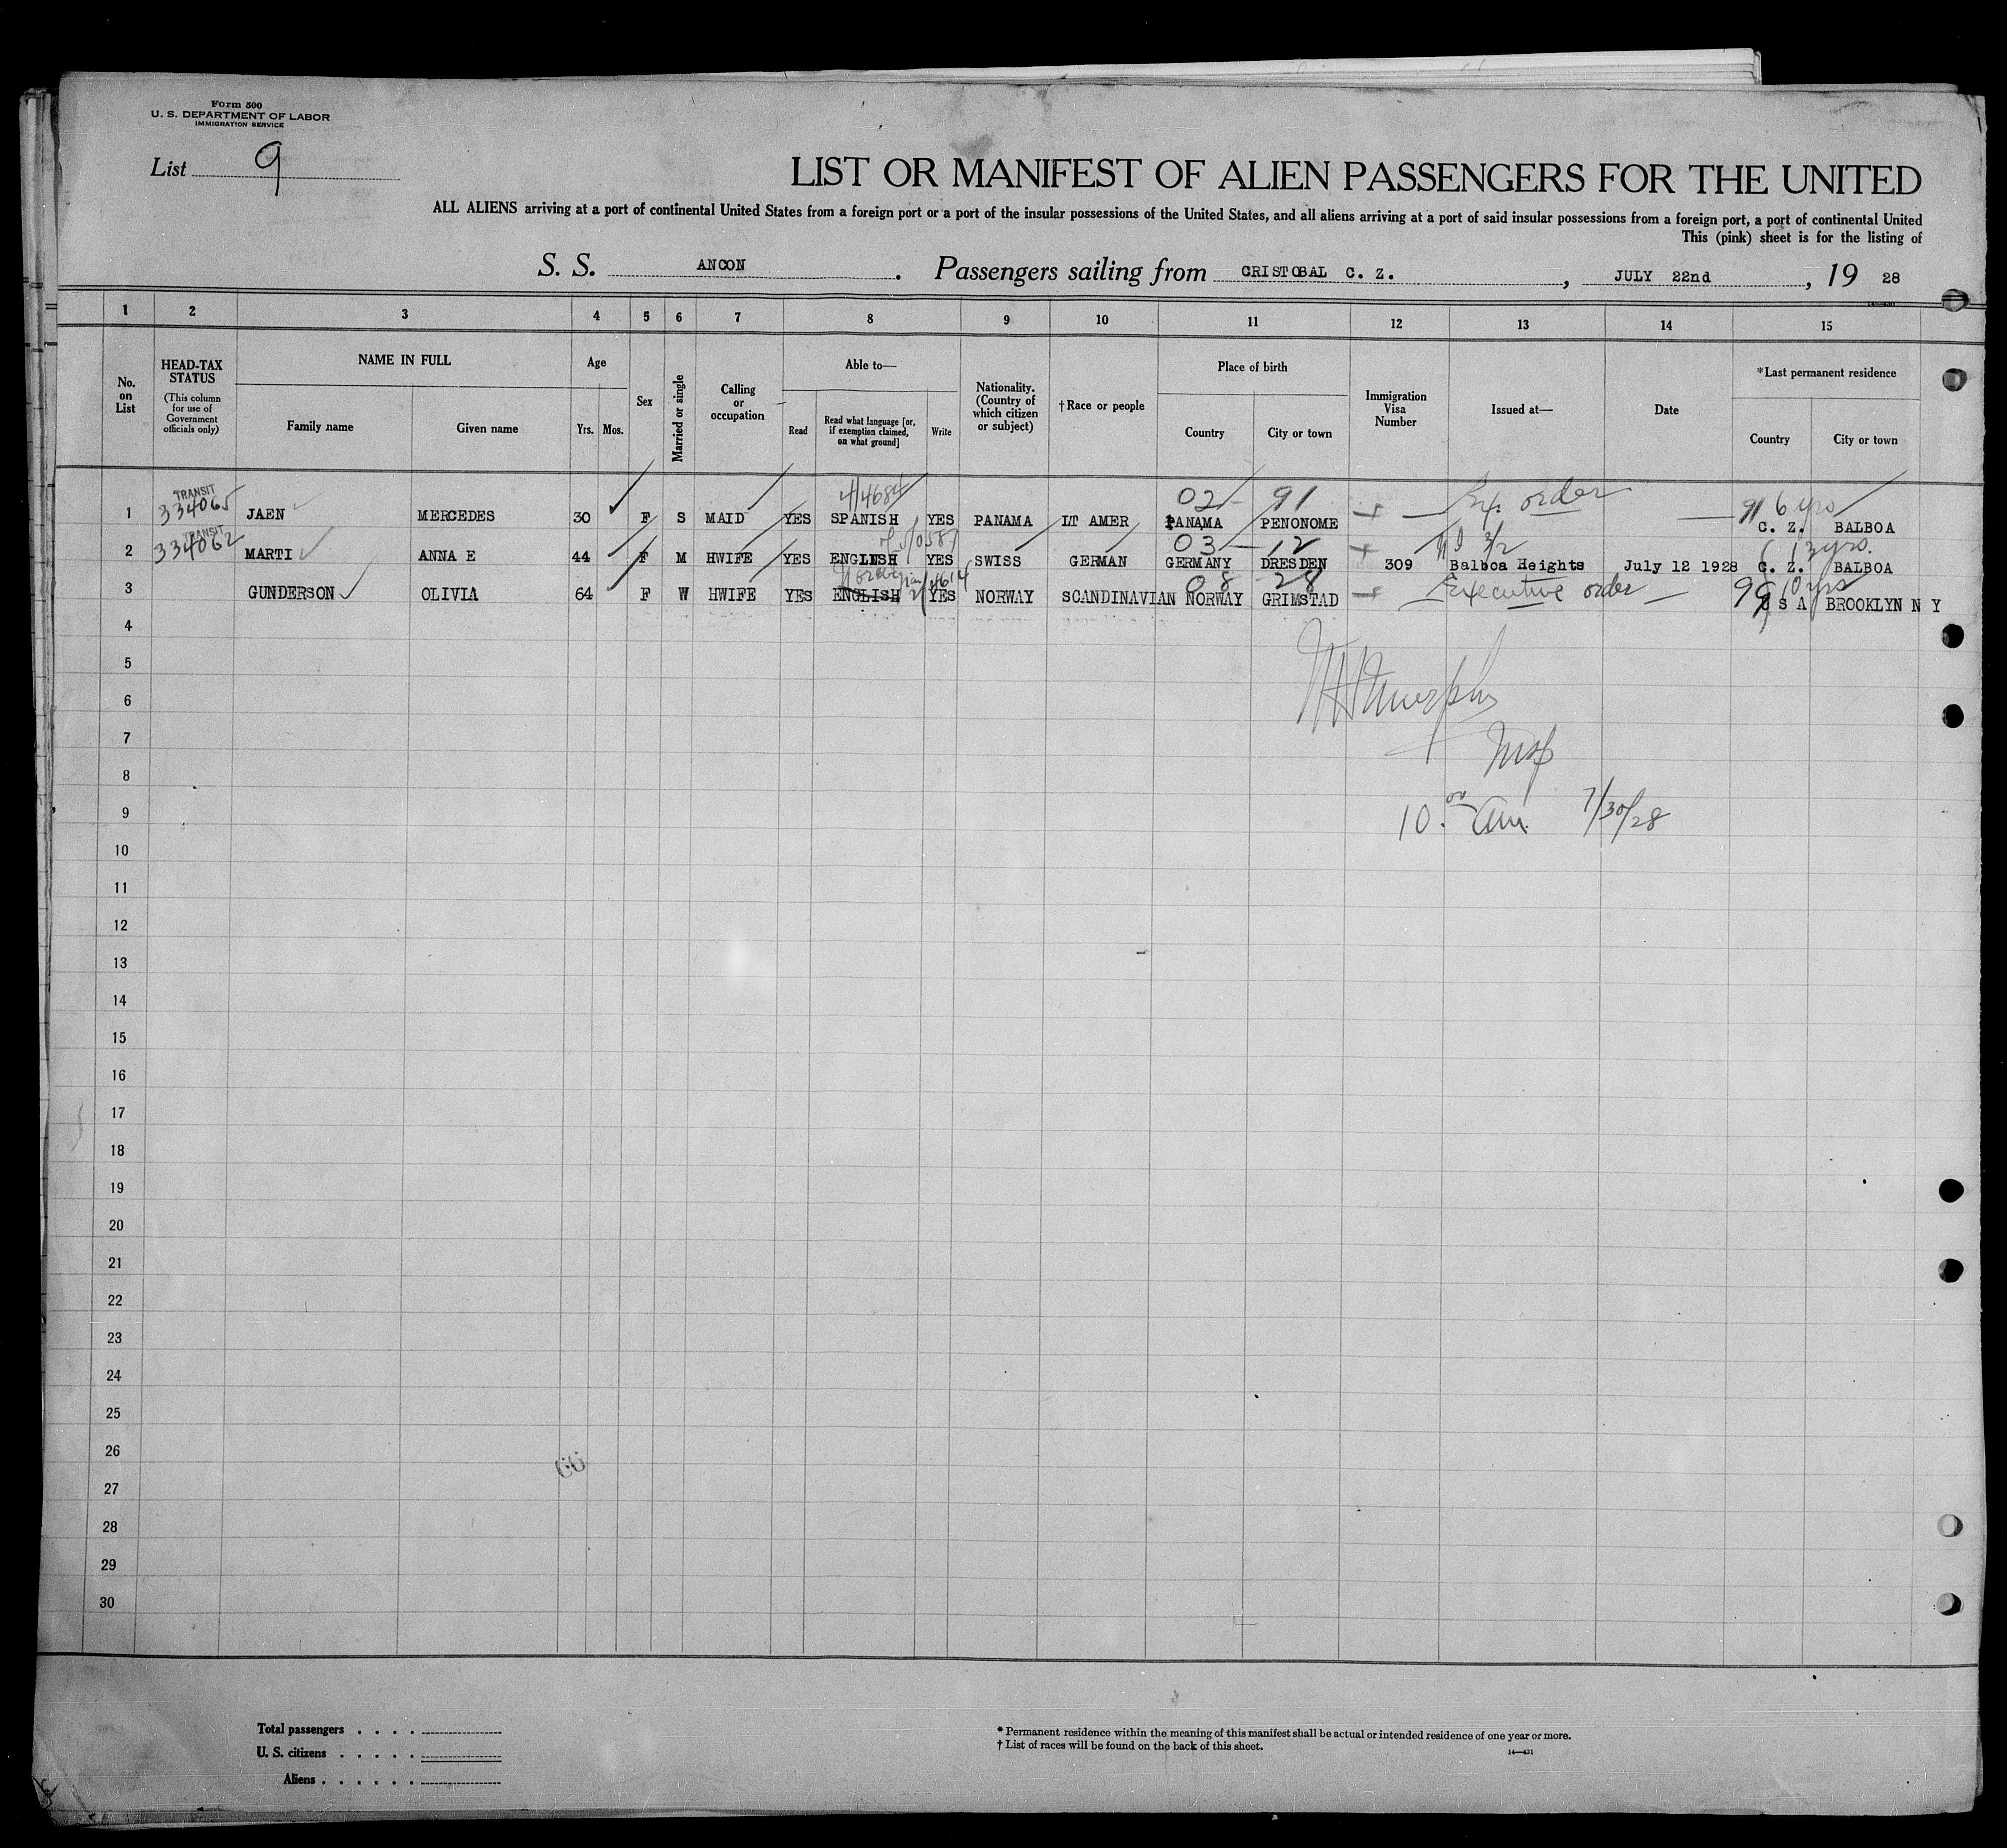 Form 500
U. S. DEPARTMENT OF LABOR
IMMIGRATION SERVICE
List 9
LIST OR MANIFEST OF ALIEN PASSENGERS FOR THE UNITED
ALL ALIENS arriving at a port of continental United States from a foreign port or a port of the insular possessions of the United States, and all aliens arriving at a port of said insular possessions from a foreign port, a port of continental United
This (pink) sheet is for the listing of
S. S. ANCON. Passengers sailing from CRISTOBAL C. Z., JULY 22nd, 19 28
1 2 3 4 5 6 7 8 9 10 11 12 13 14 15
No. on List
HEAD-TAX STATUS
(This column for use of Government officials only)
NAME IN FULL
Family name Given name
Age
Yrs. Mos.
Sex
Married or single
Calling or occupation
Able to—
Read
Read what language [or, if exemption claimed, on what ground]
Write
Nationality. (Country of which citizen or subject)
† Race or people
Place of birth
Country City or town
Immigration Visa Number
Issued at—
Date
*Last permanent residence
Country City or town
TRANSIT 4/4684 02- 91 Ex. order 91 6 yrs
1 334065 JAEN MERCEDES 30 F S MAID YES SPANISH YES PANAMA LT AMER PANAMA PENONOME C. Z. BALBOA
TRANSIT 03 - 12 3/2 13 yrs.
2 334062 MARTI ANNA E 44 F M HWIFE YES ENGLISH YES SWISS GERMAN GERMANY DRESDEN 309 Balboa Heights July 12 1928 C. Z. BALBOA
Norwegian 08 - 28 Executive order 99 10 yrs
3 GUNDERSON OLIVIA 64 F W HWIFE YES ENGLISH YES NORWAY SCANDINAVIAN NORWAY GRIMSTAD U S A BROOKLYN N Y
4
5
6 Murphy
7 Insp
8
9 10.00 am. 7/30/28
10
11
12
13
14
15
16
17
18
19
20
21
22
23
24
25
26
27
28
29
30
Total passengers . . . .
U. S. citizens . . . . .
Aliens . . . . . .
* Permanent residence within the meaning of this manifest shall be actual or intended residence of one year or more.
† List of races will be found on the back of this sheet.
14—431